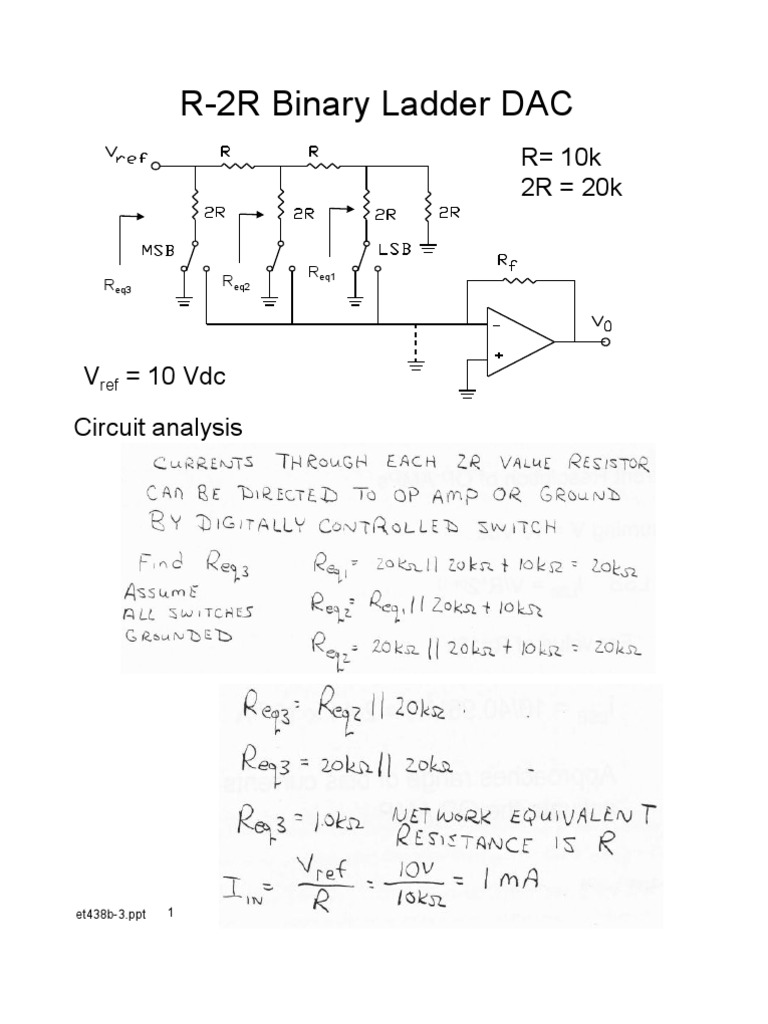 R-2R Binary Ladder DAC
Vref
R
R
R= 10k
2R = 20k
2R
2R
2R
2R
MSB
LSB
Req3
Req2
Req1
Rf
−
+
V0
Vref = 10 Vdc
Circuit analysis
CURRENTS THROUGH EACH 2R VALUE RESISTOR
CAN BE DIRECTED TO OP AMP OR GROUND
BY DIGITALLY CONTROLLED SWITCH
Find Req3
Req1 = 20kΩ || 20kΩ + 10kΩ = 20kΩ
ASSUME
ALL SWITCHES
GROUNDED
Req2 = Req1 || 20kΩ + 10kΩ
Req2 = 20kΩ || 20kΩ + 10kΩ = 20kΩ
Req3 = Req2 || 20kΩ
Req3 = 20kΩ || 20kΩ
Req3 = 10kΩ NETWORK EQUIVALENT
RESISTANCE IS R
IIN = Vref / R = 10V / 10kΩ = 1 mA
et438b-3.ppt 1